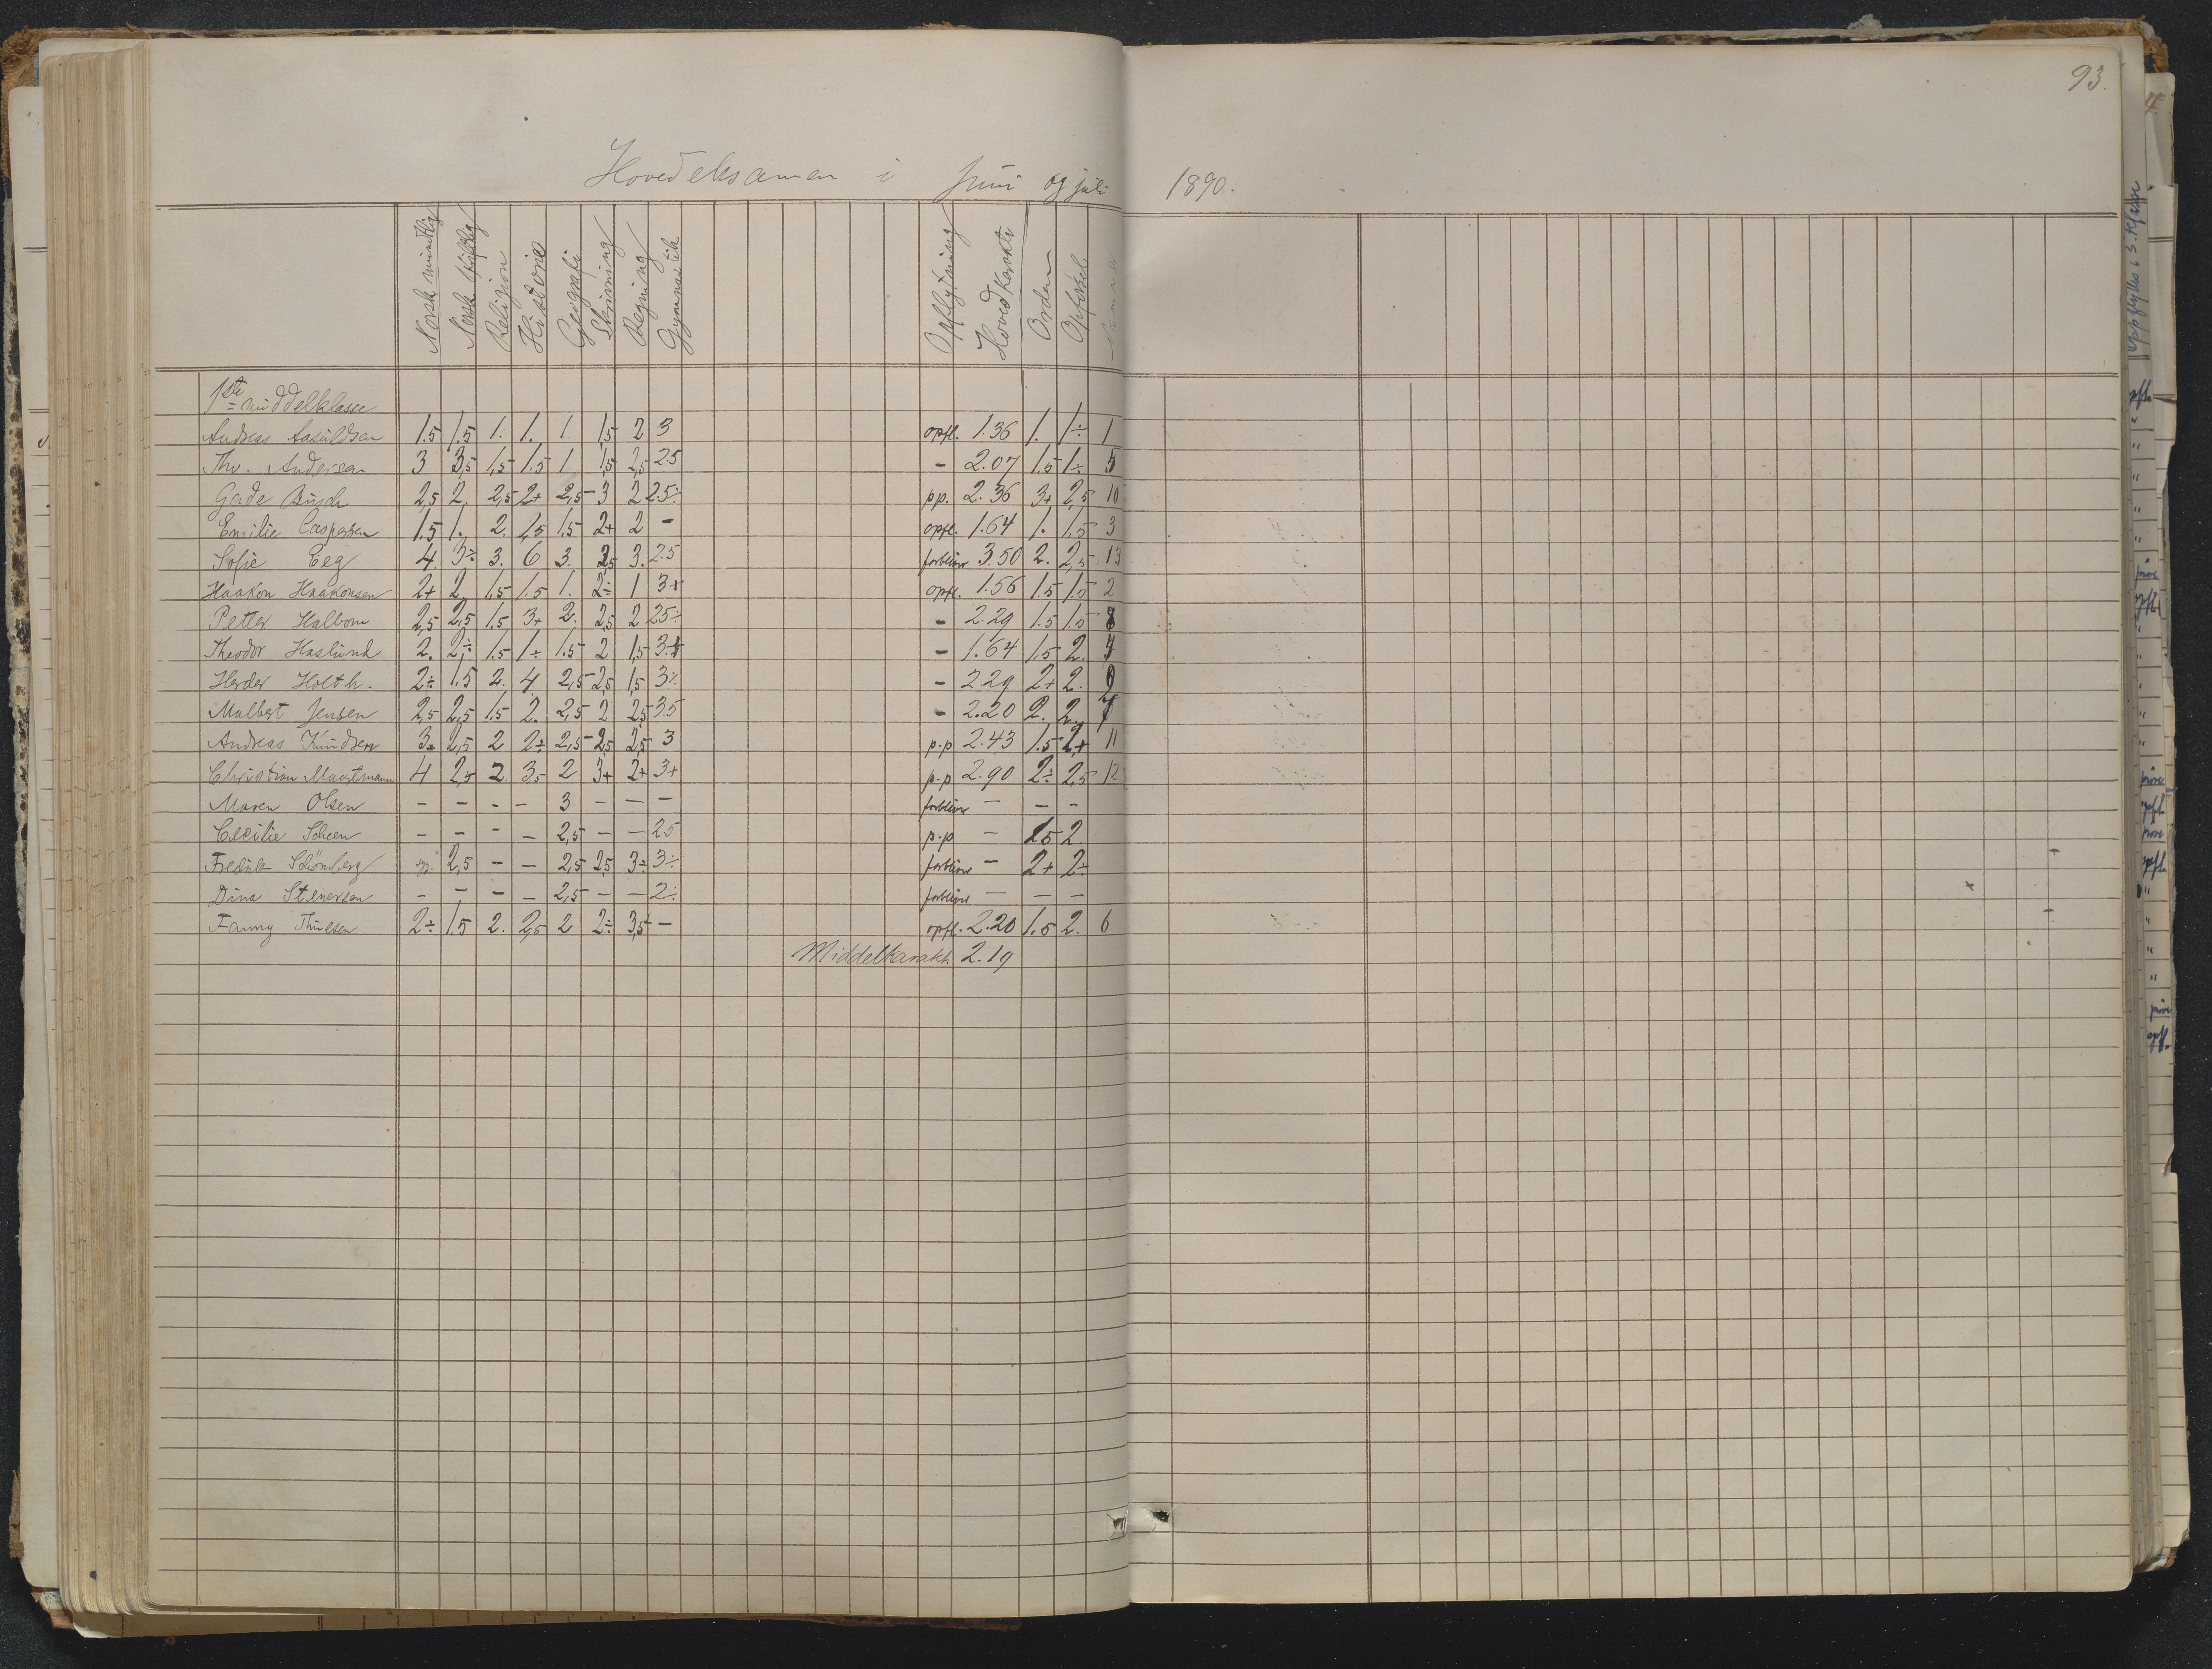 93.
Hovedeksamen i Juni og juli 1890.
Norsk mundtlig Norsk skriftlig Religion Historie Geografi Skrivning Regning Gymnastik Opflytning Hovedkarakt. Orden Opførsel
1ste middelklasse
Andreas Aasuldsen 1.5 1.5 1. 1. 1. 1,5 2 3 opfl. 1.36 1. 1÷ 1
Thv. Andersen 3 3,5 1,5 1.5 1 1,5 2,5 2.5 – 2.07 1.5 1÷ 5
Gade Busch 2,5 2. 2,5 2+ 2,5 3 2 2.5÷ pp. 2.36 3+ 2,5 10
Emilie Caspersen 1.5 1. 2. 1,5 1.5 2+ 2 – opfl. 1.64 1. 1.5 3
Sofie Eeg 4. 3÷ 3. 6 3. 2,5 3. 2.5 forbliver 3.50 2. 2,5 13
Haakon Haakonsen 2+ 2 1.5 1.5 1. 2÷ 1 3+ opfl. 1.56 1.5 1.5 2
Petter Halbom 2,5 2,5 1.5 3+ 2. 2,5 2 2.5÷ – 2.29 1.5 1.5 8
Theodor Haslund 2. 2÷ 1.5 1÷ 1.5 2 1,5 3.+ – 1.64 1.5 2. 4
Herder Holth. 2÷ 1.5 2. 4 2,5 2,5 1,5 3÷ – 2.29 2+ 2. 9
Malbert Jensen 2,5 2,5 1.5 2. 2,5 2 2,5 3.5 – 2.20 2. 2. 7
Andreas Knudsen 3+ 2,5 2 2÷ 2,5 2,5 2,5 3 p.p 2.43 1.5 2+ 11
Christian Maartmann 4 2,5 2. 3,5 2 3+ 2+ 3+ p.p 2.90 2÷ 2,5 12
Maren Olsen – – – – 3 – – – forbliver – – –
Cecilie Scheen – – – – 2,5 – – 2.5 p.p – 1.5 2
Fredrik Schömberg 2,5 – – 2,5 2,5 3÷ 3÷ forbliver – 2+ 2÷
Dina Stenersen – – – – 2,5 – – 2÷ forbliver – – –
Fanny Thulsen 2÷ 1.5 2. 2,5 2 2÷ 3,5 – opfl. 2.20 1.5 2. 6
Middelkarakt. 2.19